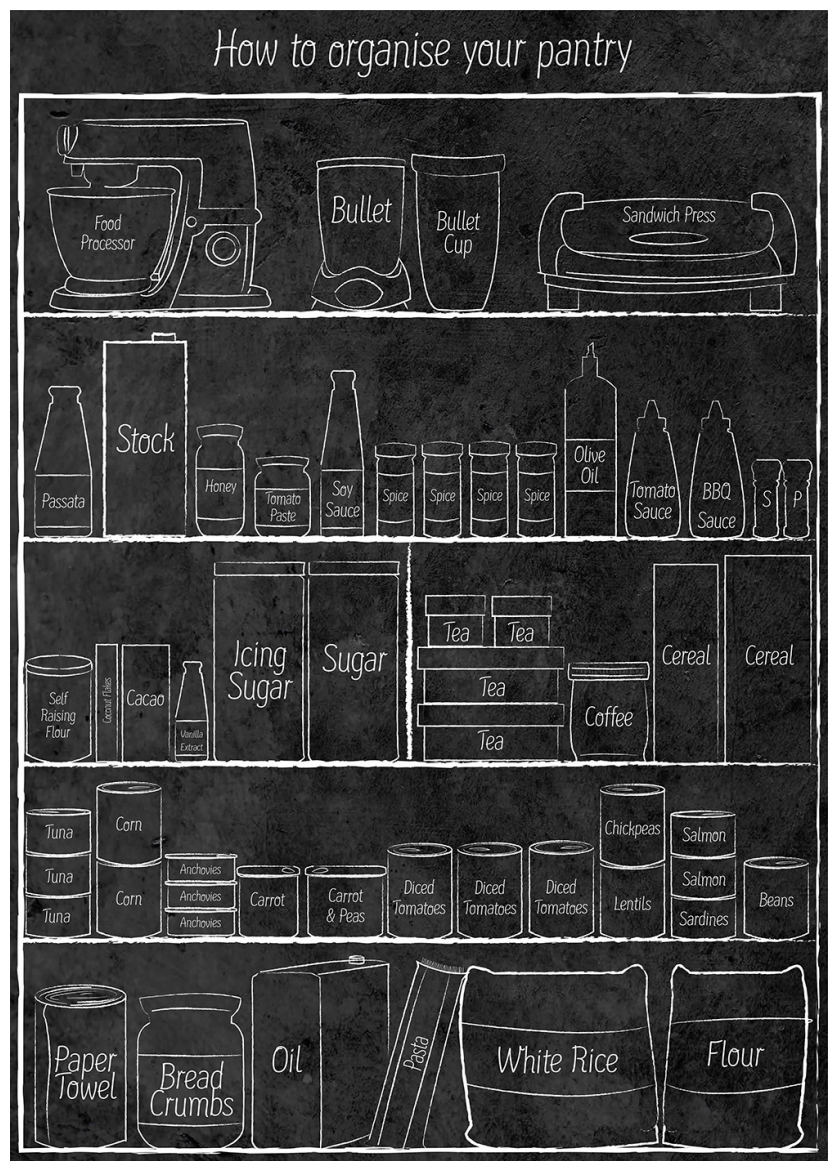 How to organise your pantry
Food
Processor
Bullet
Bullet
Cup
Sandwich Press
Passata
Stock
Honey
Tomato
Paste
Soy
Sauce
Spice
Spice
Spice
Spice
Olive
Oil
Tomato
Sauce
BBQ
Sauce
S
P
Self
Raising
Flour
Coconut Flakes
Cacao
Vanilla
Extract
Icing
Sugar
Sugar
Tea
Tea
Tea
Tea
Coffee
Cereal
Cereal
Tuna
Tuna
Tuna
Corn
Corn
Anchovies
Anchovies
Anchovies
Carrot
Carrot
& Peas
Diced
Tomatoes
Diced
Tomatoes
Diced
Tomatoes
Chickpeas
Lentils
Salmon
Salmon
Sardines
Beans
Paper
Towel
Bread
Crumbs
Oil
Pasta
White Rice
Flour